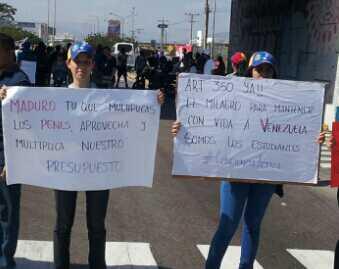 MADURO TU QUE MULTIPLICAS
LOS PENES, APROVECHA Y
MULTIPLICA NUESTRO
PRESUPUESTO
ART 350 YA!!
EL MILAGRO PARA MANTENER
CON VIDA A VENEZUELA
SOMOS LOS ESTUDIANTES